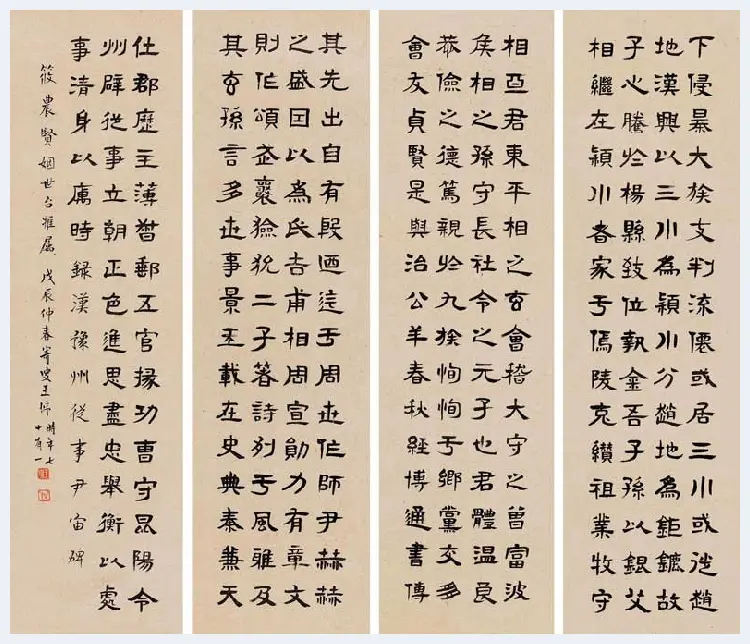 下侵暴大族支判流僊或居三川或徙趙
地漢興以三川為潁川分趙地為鉅鏕故
子心騰於楊縣致位執金吾子孫以銀艾
相繼在潁川者家于傿陵克纘祖業牧守
相亞君東平相之玄會稽大守之曾富波
侯相之孫守長社令之元子也君體溫良
恭儉之德篤親於九族恂恂于鄉黨交朋
會友貞賢是與治公羊春秋經博通書傳
其先出自有殷迺迄于周世作師尹赫赫
之盛因以為氏吉甫相周宣勛力有章文
則作頌武襄獫狁二子著詩列于風雅及
其玄孫言多世事景王載在史典秦兼天
仕郡歷主薄督郵五官掾功曹守昆陽令
州辟從事立朝正色進思盡忠舉衡以處
事清身以厲時錄漢豫州從事尹宙碑
筱農賢姻世台雅屬 戊辰仲春 叟王 時年七
十有一